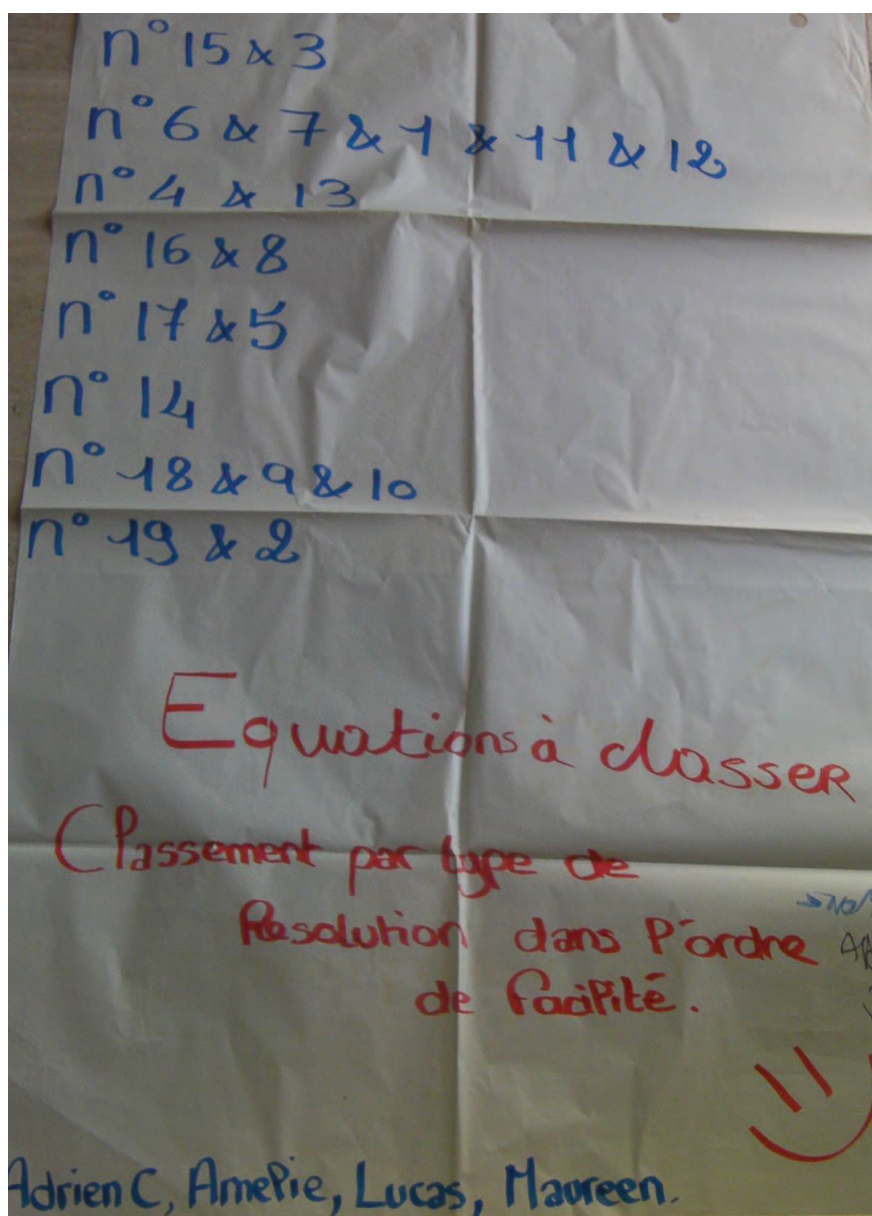 n° 15 & 3
n° 6 & 7 & 1 & 11 & 12
n° 4 & 13
n° 16 & 8
n° 17 & 5
n° 14
n° 18 & 9 & 10
n° 19 & 2
Equations à classer
Classement par type de
Resolution dans l'ordre
de facilité.
Adrien C, Amelie, Lucas, Maureen.